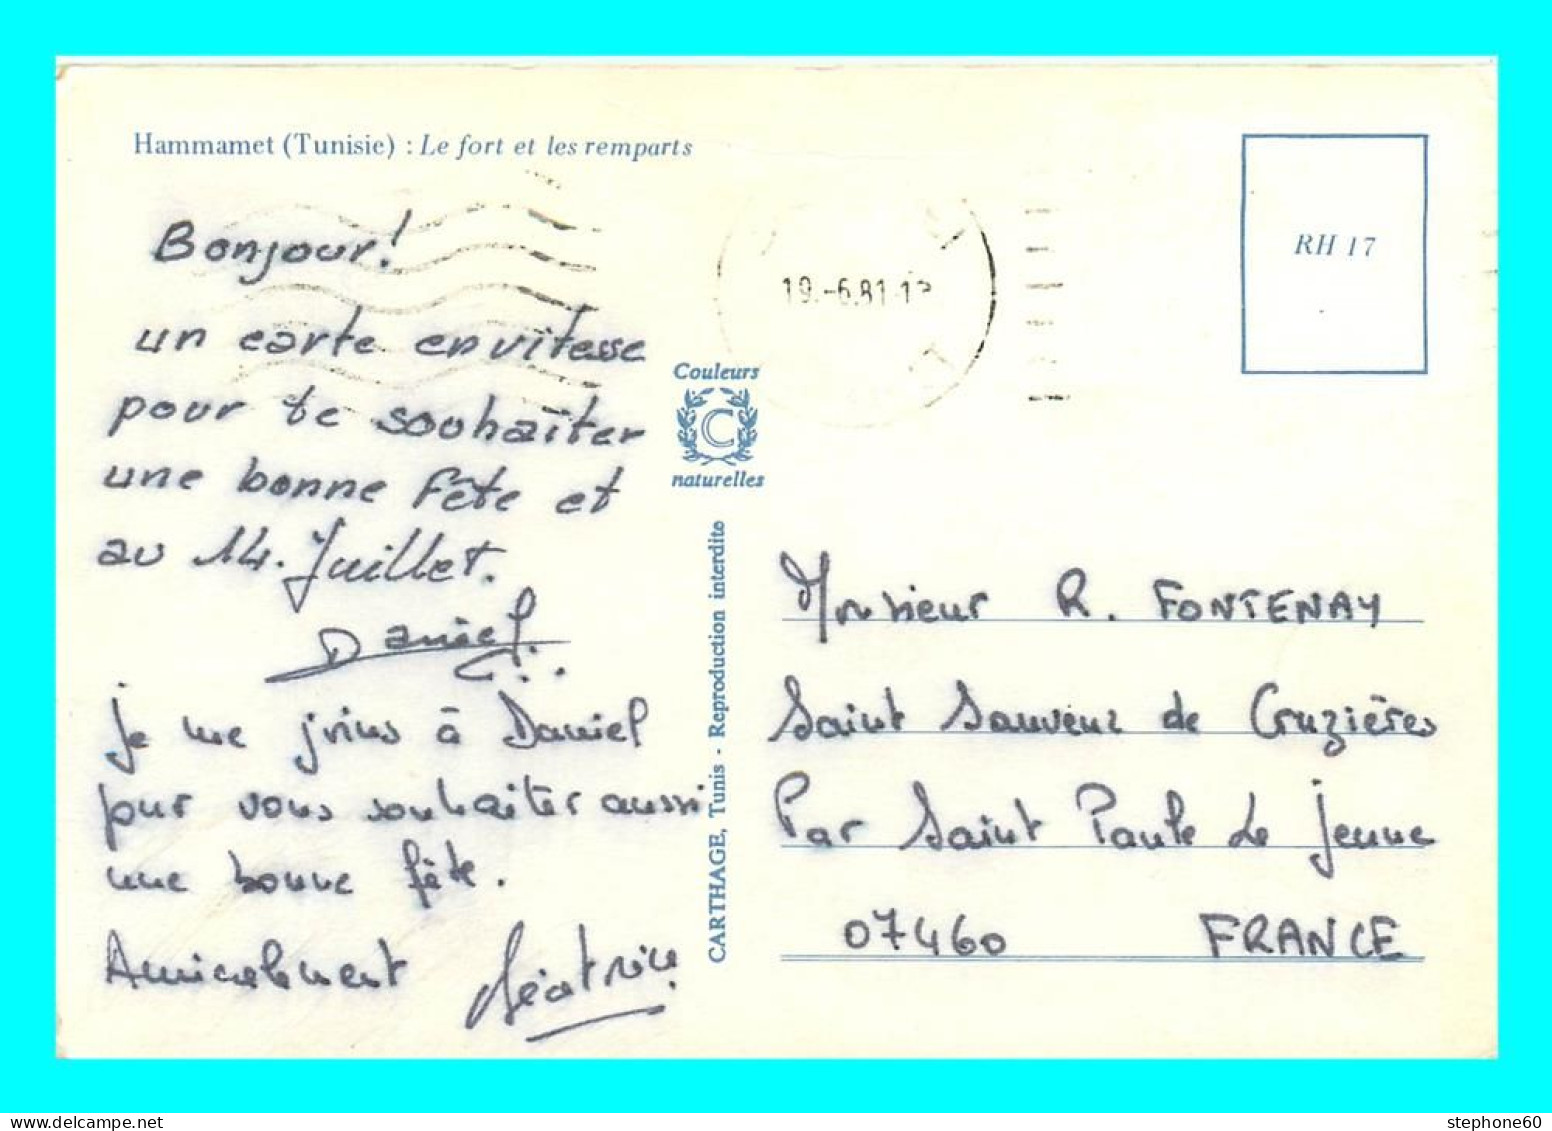 Hammamet (Tunisie) : Le fort et les remparts
Bonjour!
un carte en vitesse
pour te souhaîter
une bonne fête et
au 14. Juillet.
Daniel
je me joins à Daniel
pour vous souhaiter aussi
une bonne fête.
Amicalement Béatrice
19.-6.81
Couleurs
C
naturelles
CARTHAGE, Tunis - Reproduction interdite
RH 17
Monsieur R. FONTENAY
Saint Sauveur de Cruzières
Par Saint Paule Le Jeune
07460 FRANCE
stephone60